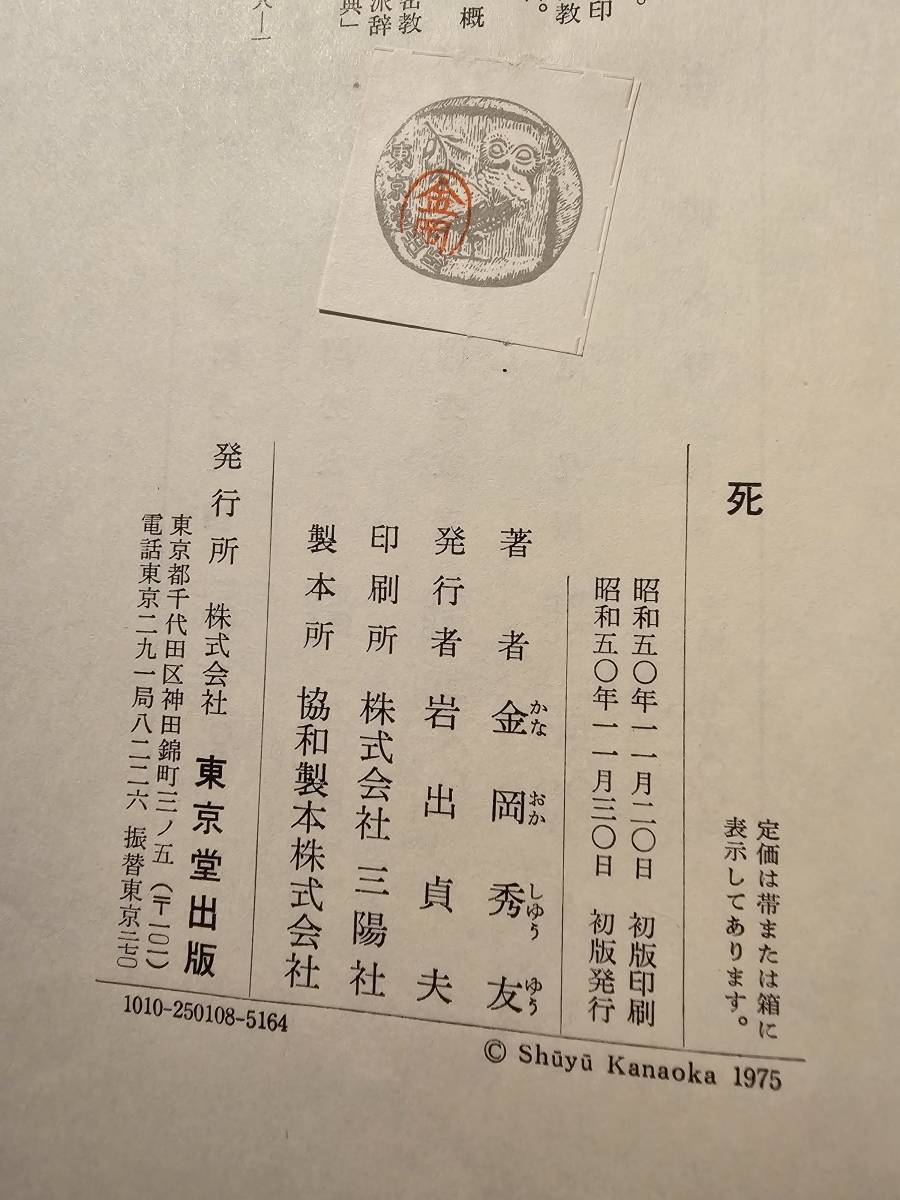 。
印
教
。
概
密教
派辞
典」
東京
金岡
死
定価は帯または箱に
表示してあります。
昭和五〇年一一月二〇日 初版印刷
昭和五〇年一一月三〇日 初版発行
著者 金岡秀友
かな おか しゆう ゆう
発行者 岩出貞夫
印刷所 株式会社三陽社
製本所 協和製本株式会社
発行所 株式会社 東京堂出版
東京都千代田区神田錦町三ノ五(〒一〇一)
電話東京二九一局八二二六 振替東京二七〇
1010-250108-5164
© Shūyū Kanaoka 1975